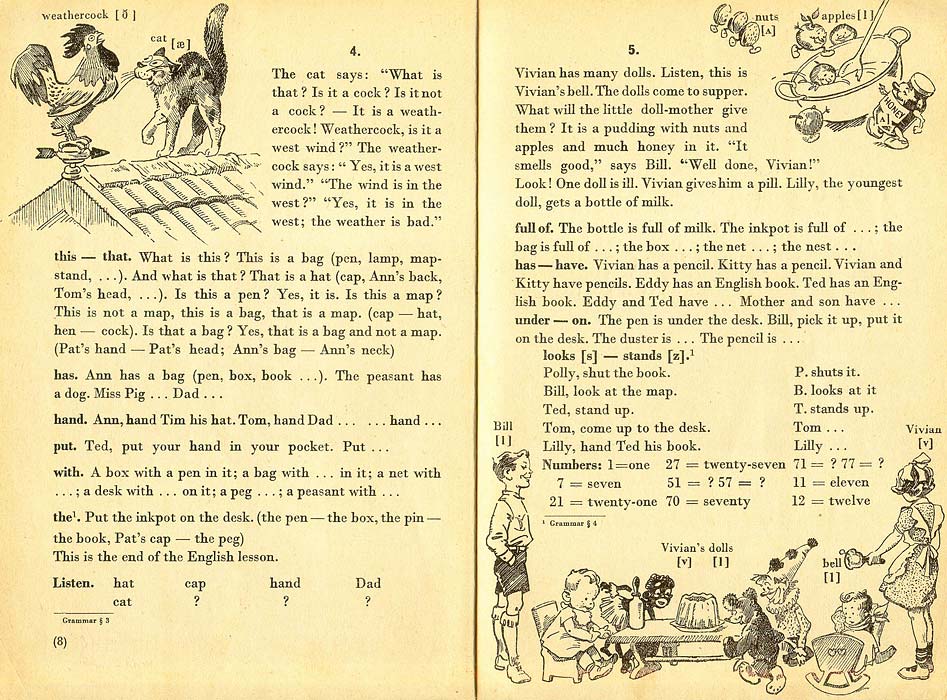 weathercock [ð]
cat [æ]
4.
The cat says: “What is
that? Is it a cock? Is it not
a cock? — It is a weath-
ercock! Weathercock, is it a
west wind?” The weather-
cock says: “ Yes, it is a west
wind.” “The wind is in the
west?” “Yes, it is in the
west; the weather is bad.”
this — that. What is this? This is a bag (pen, lamp, map-
stand, ...). And what is that? That is a hat (cap, Ann’s back,
Tom’s head, ...). Is this a pen? Yes, it is. Is this a map?
This is not a map, this is a bag, that is a map. (cap — hat,
hen — cock). Is that a bag? Yes, that is a bag and not a map.
(Pat’s hand — Pat’s head; Ann’s bag — Ann’s neck)
has. Ann has a bag (pen, box, book ...). The peasant has
a dog. Miss Pig ... Dad ...
hand. Ann, hand Tim his hat. Tom, hand Dad ... ... hand ...
put. Ted, put your hand in your pocket. Put ...
with. A box with a pen in it; a bag with ... in it; a net with
...; a desk with ... on it; a peg ...; a peasant with ...
the¹. Put the inkpot on the desk. (the pen — the box, the pin —
the book, Pat’s cap — the peg)
This is the end of the English lesson.
Listen. hat cap hand Dad
cat ? ? ?
Grammar § 3
(8)
nuts
[ʌ]
apples [l]
HONEY
[ʌ]
5.
Vivian has many dolls. Listen, this is
Vivian’s bell. The dolls come to supper.
What will the little doll-mother give
them? It is a pudding with nuts and
apples and much honey in it. “It
smells good,” says Bill. “Well done, Vivian!”
Look! One doll is ill. Vivian gives him a pill. Lilly, the youngest
doll, gets a bottle of milk.
full of. The bottle is full of milk. The inkpot is full of ...; the
bag is full of ...; the box ...; the net ...; the nest ...
has — have. Vivian has a pencil. Kitty has a pencil. Vivian and
Kitty have pencils. Eddy has an English book. Ted has an Eng-
lish book. Eddy and Ted have ... Mother and son have ...
under — on. The pen is under the desk. Bill, pick it up, put it
on the desk. The duster is ... The pencil is ...
looks [s] — stands [z].¹
Polly, shut the book. P. shuts it.
Bill, look at the map. B. looks at it
Ted, stand up. T. stands up.
Tom, come up to the desk. Tom ...
Lilly, hand Ted his book. Lilly ...
Numbers: 1 = one 27 = twenty-seven 71 = ? 77 = ?
7 = seven 51 = ? 57 = ? 11 = eleven
21 = twenty-one 70 = seventy 12 = twelve
¹ Grammar § 4
Bill
[l]
Vivian
[v]
Vivian’s dolls
[v] [l]
bell
[l]